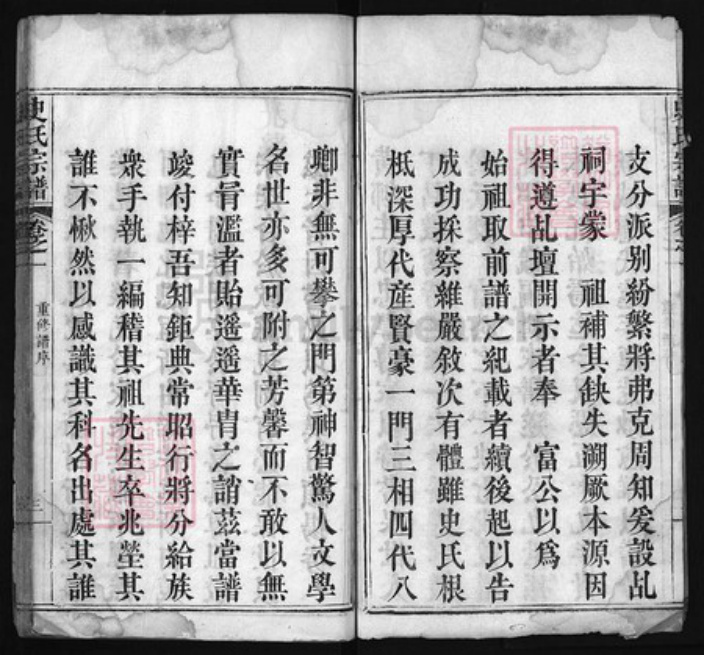 支分派別紛繁將弗克周知爰設乩
祠宇蒙 祖補其缺失溯厥本源因
得遵乩壇開示者奉 富公以爲
始祖取前譜之紀載者續後起以告
成功採察維嚴敘次有體雖史氏根
柢深厚代産賢豪一門三相四代八
卿非無可攀之門第神智驚人文學
名世亦多可附之芳馨而不敢以無
實冐濫者貽遥遥華胄之誚茲當譜
竣付梓吾知鉅典常昭行將分給族
衆手執一編稽其祖先生卒兆塋其
誰不愀然以感識其科名出處其誰
史氏宗譜
卷之一
重修譜序
三